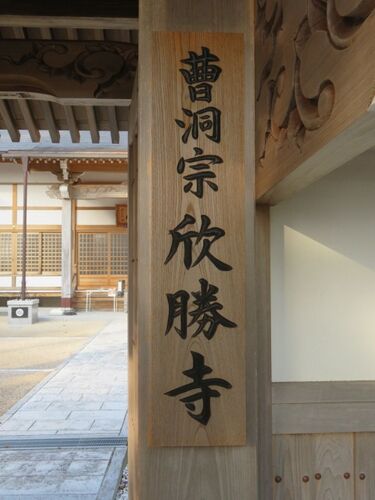 曹洞宗欣勝寺